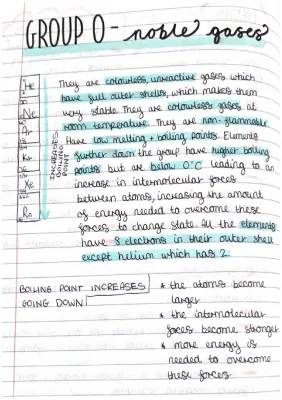 GROUP 0 - noble gases
He
Ne
Ar
Kr
Xe
Rn
INCREASES
BOILING
POINT
They are colourless, unreactive gases which
have full outer shells, which makes them
very stable. They are colourless gases at
room temperature. They are non-flammable.
Have low melting + boiling points. Elements
further down the group have higher boiling
points but are below 0°C leading to an
increase in intermolecular forces
between atoms, increasing the amount
of energy needed to overcome these
forces to change state. All the elements
have 8 electrons in their outer shell
except helium which has 2.
BOILING POINT INCREASES
GOING DOWN
* the atoms become
larger
* the intermolecular
forces become stronger
* more energy is
needed to overcome
these forces